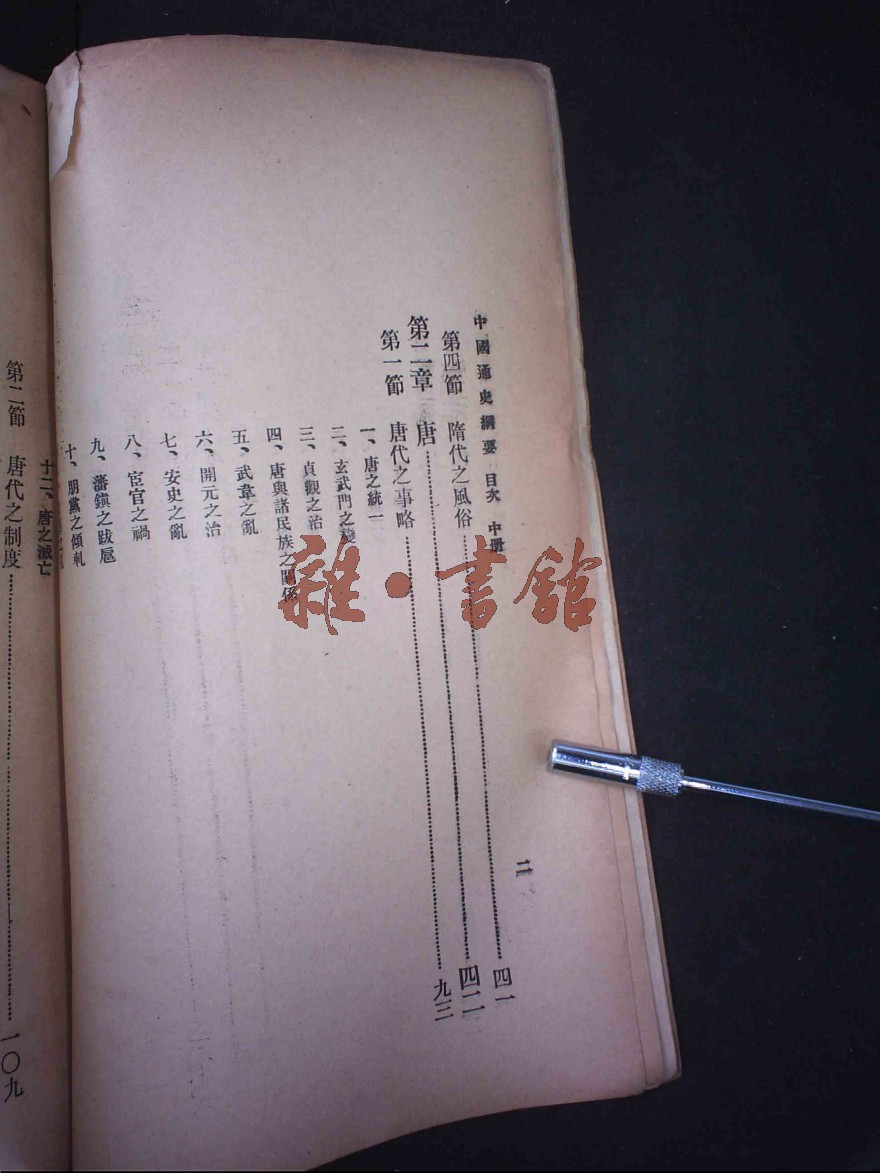 中國通史綱要 目次 中册 二
第四節 隋代之風俗……四一
第二章 唐……四二
第一節 唐代之事略……九三
一、唐之統一
二、玄武門之變
三、貞觀之治
四、唐與諸民族之關係
五、武韋之亂
六、開元之治
七、安史之亂
八、宦官之禍
九、藩鎮之跋扈
十、朋黨之傾軋
十二、唐之滅亡
第二節 唐代之制度……一〇九
雜·書館